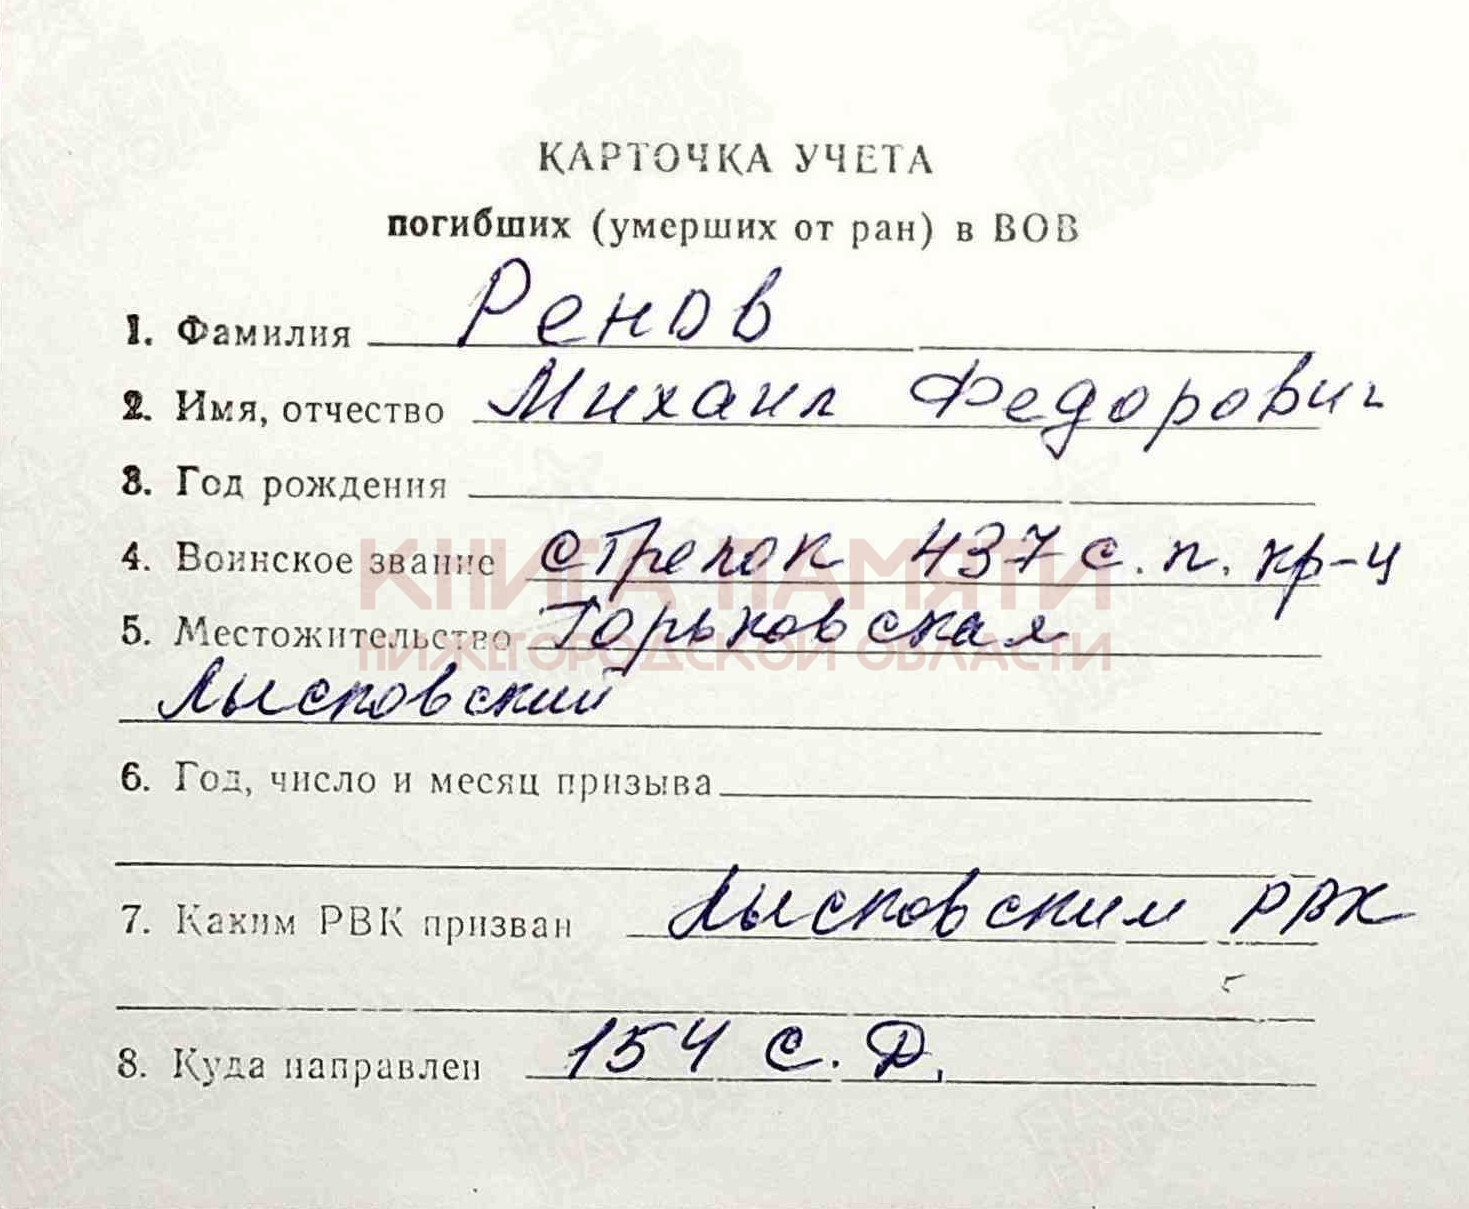 КАРТОЧКА УЧЕТА
погибших (умерших от ран) в ВОВ
1. Фамилия Ренов
2. Имя, отчество Михаил Федорович
3. Год рождения
4. Воинское звание стрелок 437 с.п. кр-ц
КНИГА ПАМЯТИ
5. Местожительство Горьковская
НИЖЕГОРОДСКОЙ ОБЛАСТИ
Лысковский
6. Год, число и месяц призыва
7. Каким РВК призван Лысковским РВК
8. Куда направлен 154 с.Д.